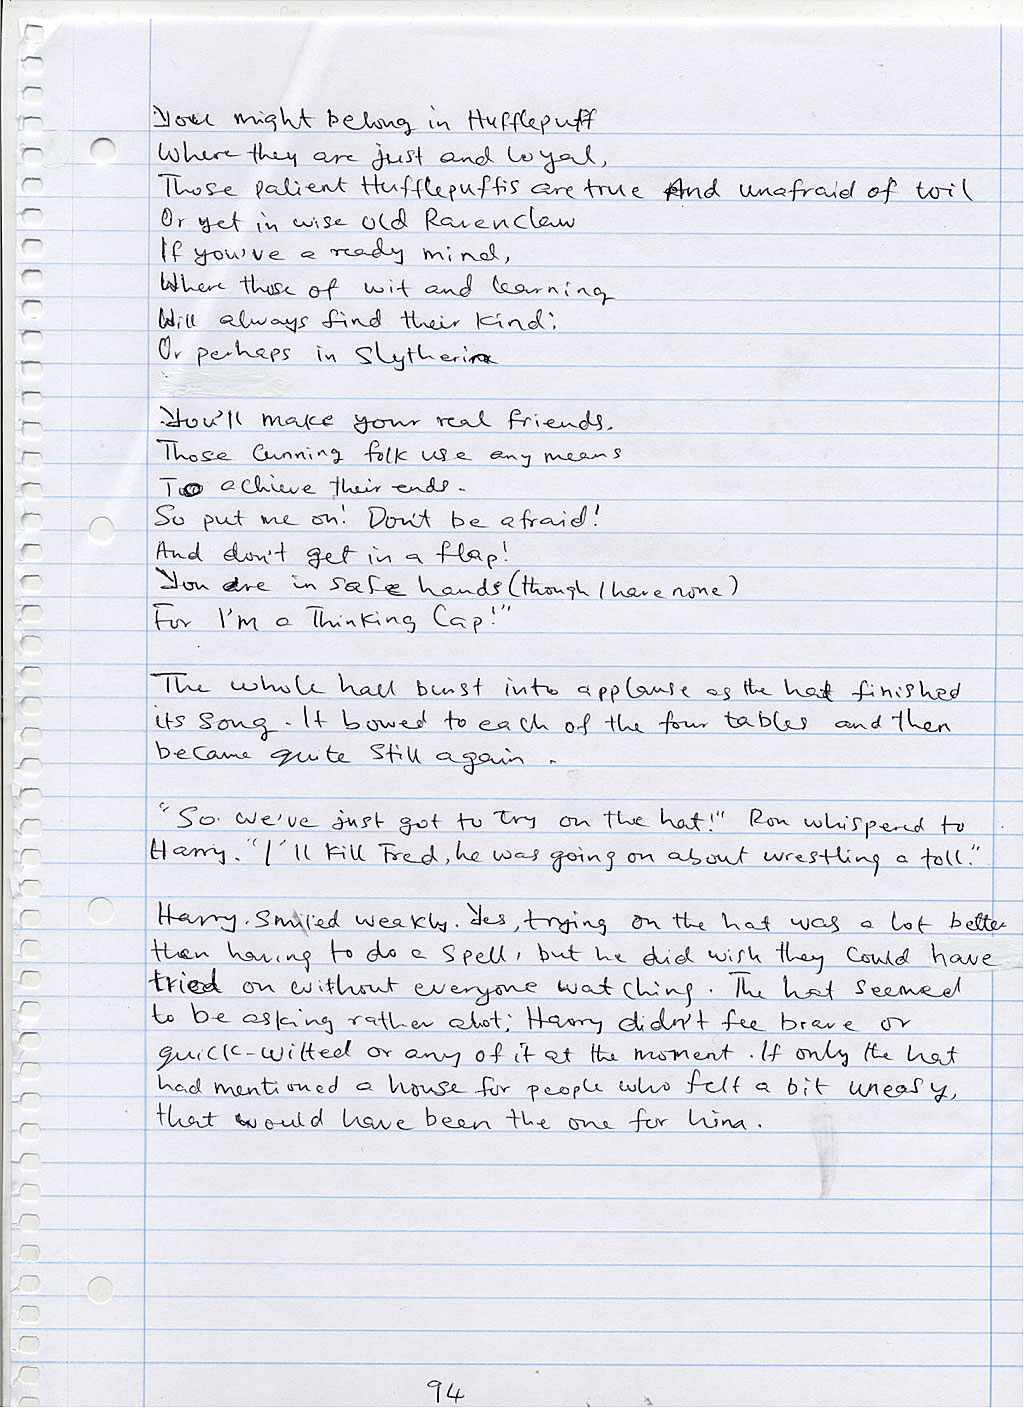 You might belong in Hufflepuff
Where they are just and loyal,
Those patient Hufflepuffis are true And unafraid of toil
Or yet in wise old Ravenclaw
If you've a ready mind,
Where those of wit and learning
Will always find their kind;
Or perhaps in Slytherin
You'll make your real friends.
Those Cunning folk use any means
To achieve their ends.
So put me on! Don't be afraid!
And don't get in a flap!
You are in safe hands (though I have none)
For I'm a Thinking Cap!"
The whole hall burst into applause as the hat finished
its song. It bowed to each of the four tables and then
became quite still again.
"So. we've just got to try on the hat!" Ron whispered to
Harry. "I'll kill Fred, he was going on about wrestling a toll."
Harry. smiled weakly. Yes, trying on the hat was a lot better
than having to do a spell, but he did wish they could have
tried on without everyone watching. The hat seemed
to be asking rather alot; Harry didn't fee brave or
quick-witted or any of it at the moment. If only the hat
had mentioned a house for people who felt a bit uneasy,
that would have been the one for him.
94